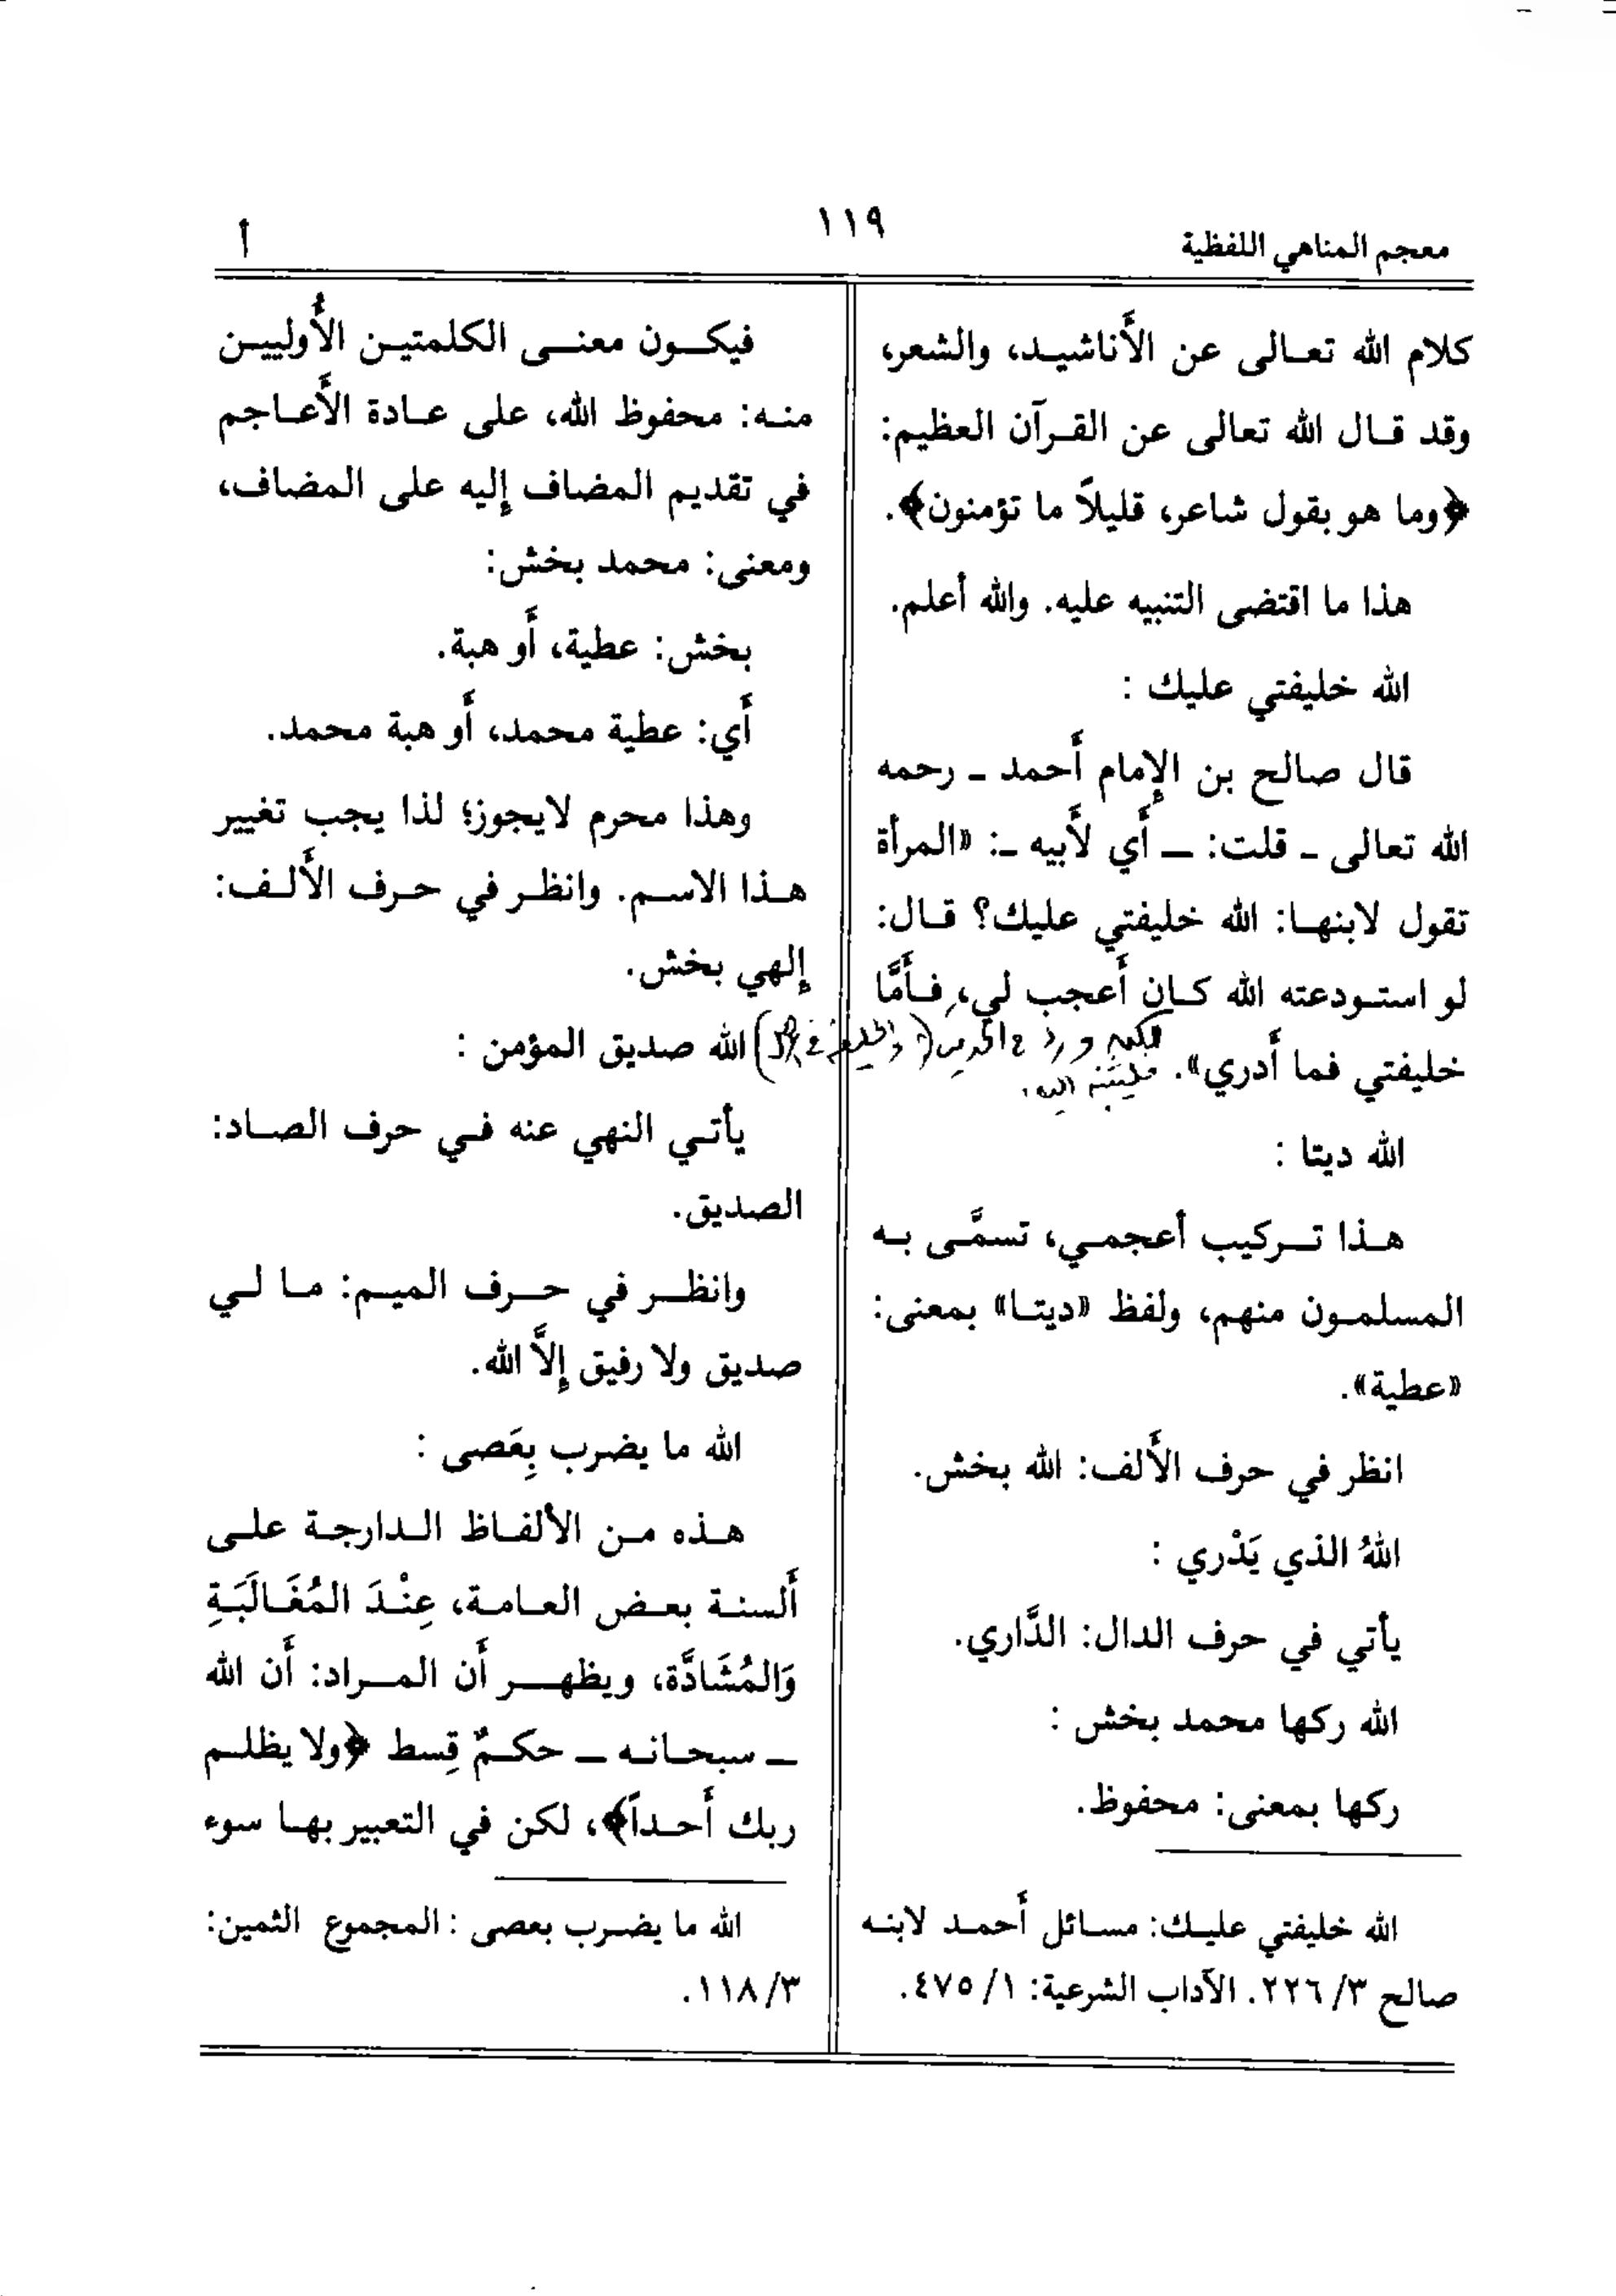 معجم المناهي اللفظية
١١٩
أ
كلام الله تعالى عن الأَناشيد، والشعر،
وقد قال الله تعالى عن القرآن العظيم:
﴿وما هو بقول شاعر، قليلاً ما تؤمنون﴾.
هذا ما اقتضى التنبيه عليه. والله أعلم.
الله خليفتي عليك :
قال صالح بن الإمام أَحمد ـ رحمه
الله تعالى ـ قلت: ــ أَي لأَبيه ـ: «المرأة
تقول لابنها: الله خليفتي عليك؟ قال:
لو استودعته الله كان أَعجب لي، فأَمَّا
خليفتي فما أَدري».
لكنه ورد في الحديث (والخليفة في الأهل)
الله ديتا :
هذا تركيب أعجمي، تسمَّى به
المسلمون منهم، ولفظ «ديتا» بمعنى:
«عطية».
انظر في حرف الأَلف: الله بخش.
اللهُ الذي يَدْري :
يأتي في حرف الدال: الدَّاري.
الله ركها محمد بخش :
ركها بمعنى: محفوظ.
الله خليفتي عليك: مسائل أَحمد لابنه
صالح ٣/ ٢٢٦. الآداب الشرعية: ١/ ٤٧٥.
فيكون معنى الكلمتين الأُوليين
منه: محفوظ الله، على عادة الأَعاجم
في تقديم المضاف إليه على المضاف،
ومعنى: محمد بخش:
بخش: عطية، أَو هبة.
أَي: عطية محمد، أَو هبة محمد.
وهذا محرم لايجوز؛ لذا يجب تغيير
هذا الاسم. وانظر في حرف الأَلف:
إلهي بخش.
الله صديق المؤمن :
يأتي النهي عنه في حرف الصاد:
الصديق.
وانظر في حرف الميم: ما لي
صديق ولا رفيق إلاَّ الله.
الله ما يضرب بِعَصى :
هذه من الألفاظ الدارجة على
أَلسنة بعض العامة، عِنْدَ المُغَالَبَةِ
وَالمُشَادَّة، ويظهر أَن المراد: أَن الله
ــ سبحانه ــ حكمٌ قِسط ﴿ولا يظلم
ربك أَحداً﴾، لكن في التعبير بها سوء
الله ما يضرب بعصى : المجموع الثمين:
٣/ ١١٨.